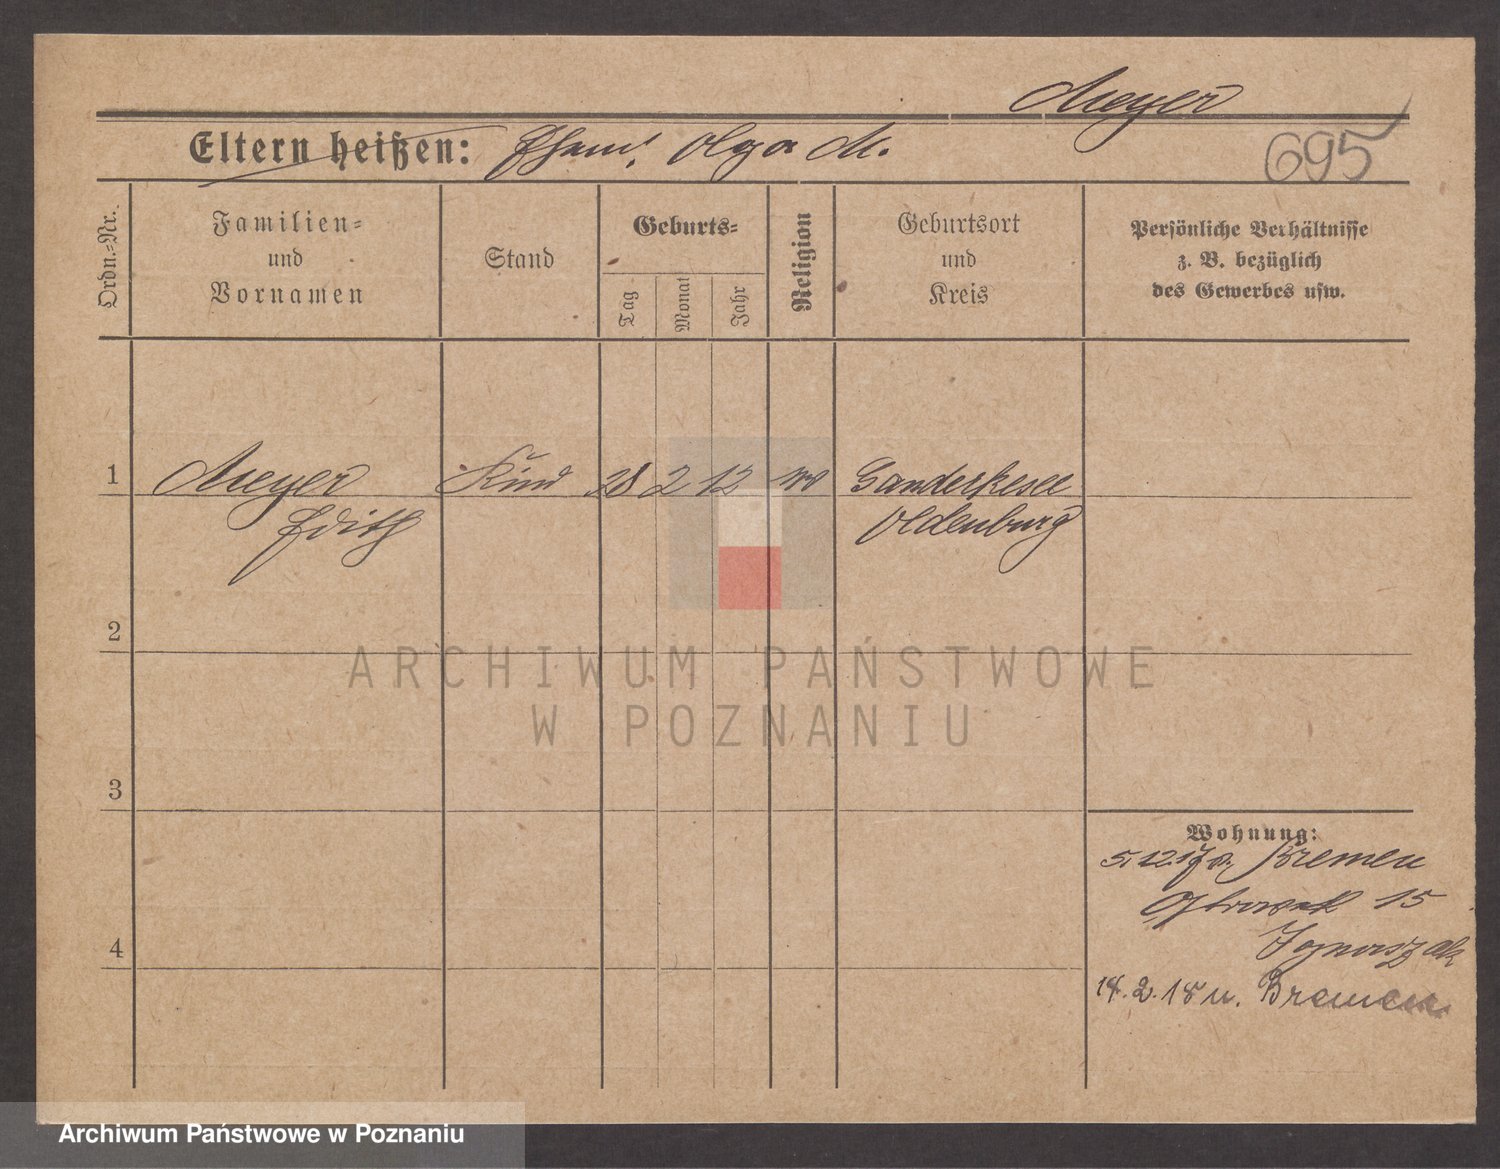 Meyer
Eltern heißen: Olga M.
695
Ordn.=Nr.
Familien=
und
Vornamen
Stand
Geburts=
Tag
Monat
Jahr
Religion
Geburtsort
und
Kreis
Persönliche Verhältnisse
z. B. bezüglich
des Gewerbes usw.
1
Meyer
Edith
Kind
28 2 12
Ganderkesee
Oldenburg
2
3
4
Wohnung:
5.12.17 v. Bremen
15
Ignaszak
14.2.18 n. Bremen
ARCHIWUM PAŃSTWOWE
W POZNANIU
Archiwum Państwowe w Poznaniu